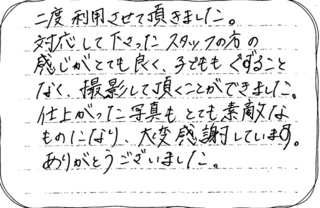 二度利用させて頂きました。
対応して下さったスタッフの方の
感じがとても良く、子どももぐずること
なく、撮影して頂くことができました。
仕上がった写真もとても素敵な
ものになり、大変感謝しています。
ありがとうございました。